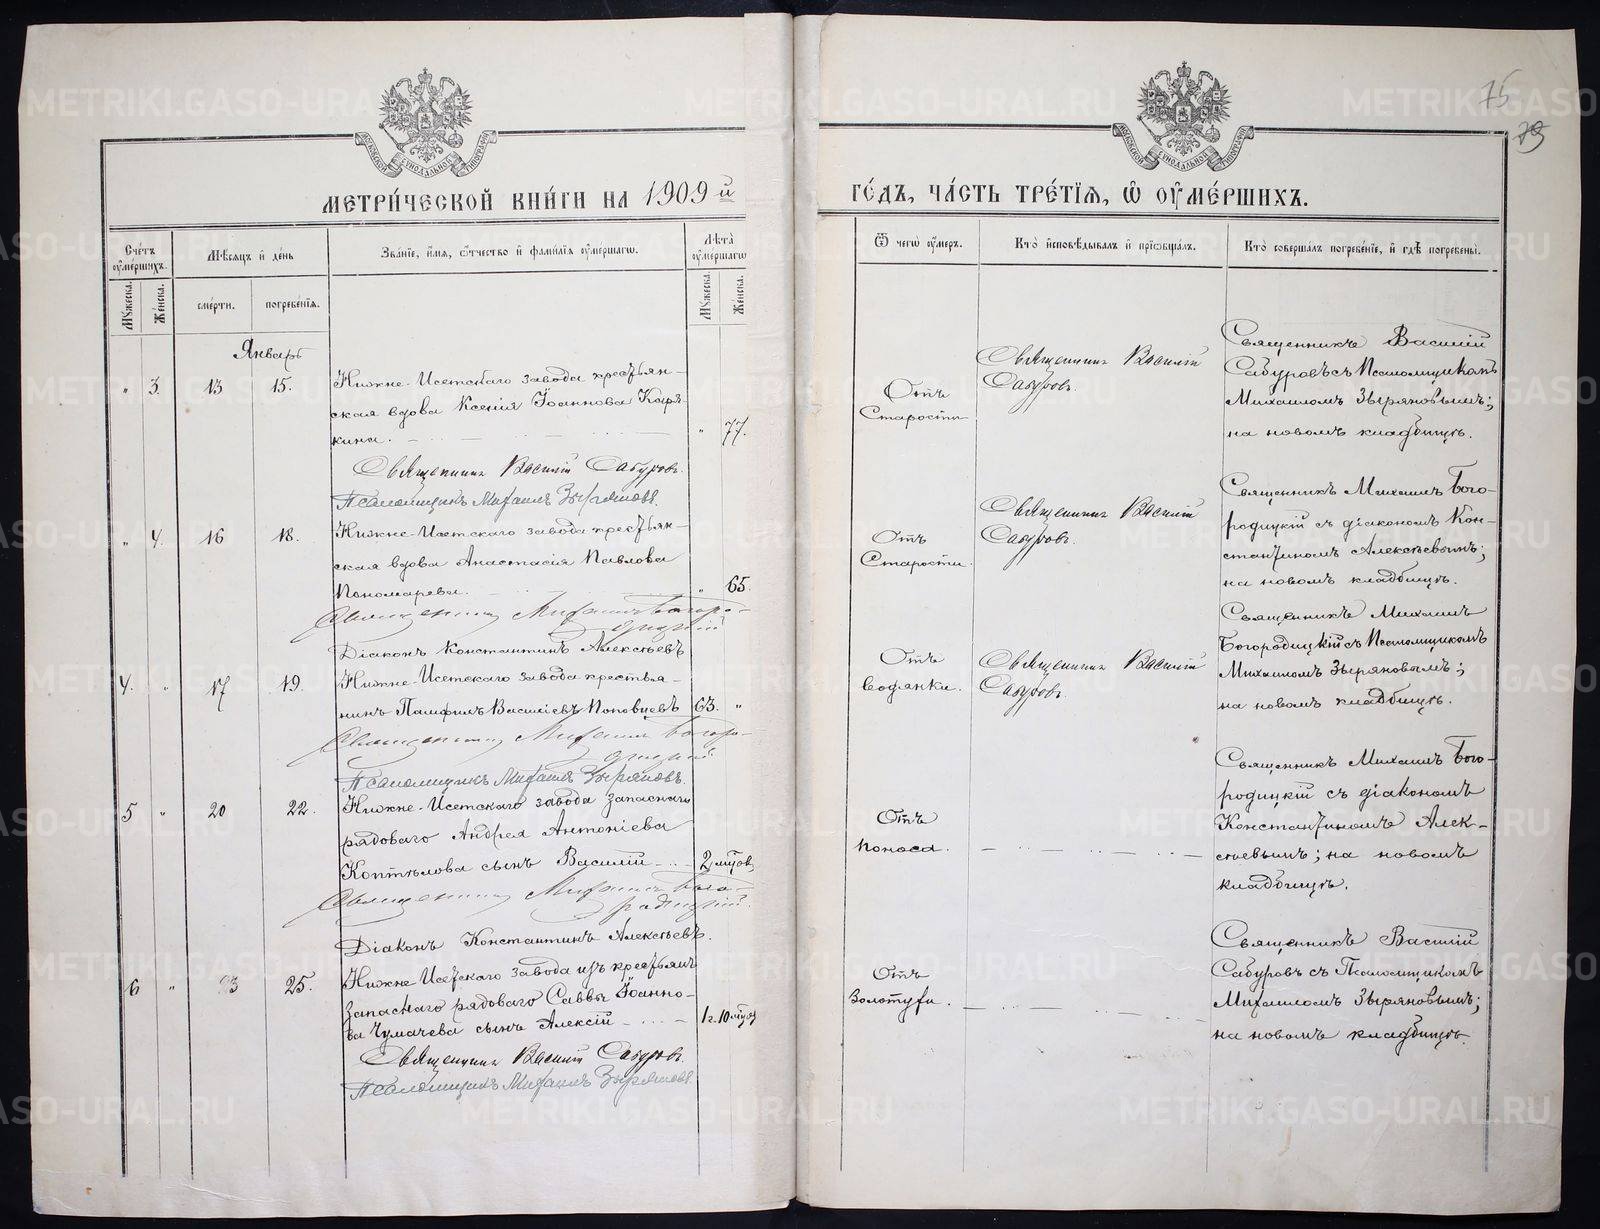 75
79
МОСКОВСКОЙ СУНОДАЛЬНОЙ ТИПОГРАФІИ
МОСКОВСКОЙ СУНОДАЛЬНОЙ ТИПОГРАФІИ
МЕТРИ́ЧЕСКОЙ КНИ́ГИ НА 1909 й
ГО́ДЪ, ЧА́СТЬ ТРЕ́ТІЯ, Ѡ ОУМЕ́РШИХЪ.
Сче́тъ оумершихъ.
Мужеска.
Же́нска.
Мѣсяцъ и день
сме́рти.
погребе́нія.
Зва́ніе, и́мя, ѻ҆́тчество и фами́лія оуме́ршагѡ.
Лѣта̀ оуме́ршагѡ
Мужеска.
Же́нска.
Ѿ чегѡ̀ оу́меръ.
Кто̀ исповѣ́дывалъ и прїѡбща́лъ.
Кто̀ соверша́лъ погребе́ніе, и гдѣ̀ погребены̀.
Январь
" 3. 13 15.
Нижне-Исетскаго завода крестьян-
ская вдова Ксенія Іоаннова Карь-
кина. " 77.
Священникъ Василій Сабуровъ.
Псаломщикъ Михаилъ Зыряновъ.
Отъ
Старости
Священникъ Василій
Сабуровъ.
Священникъ Василій
Сабуровъ съ Псаломщикомъ
Михаиломъ Зыряновымъ;
на новомъ кладбищѣ.
" 4. 16 18.
Нижне-Исетскаго завода крестьян-
ская вдова Анастасія Павлова
Пономарева. " 65.
Священникъ Михаилъ Богоро-
дицкій
Діаконъ Константинъ Алексѣевъ
Отъ
Старости.
Священникъ Василій
Сабуровъ.
Священникъ Михаилъ Бого-
родицкій съ діакономъ Кон-
стантиномъ Алексѣевымъ;
на новомъ кладбищѣ.
4. " 17 19.
Нижне-Исетскаго завода крестья-
нинъ Памфилъ Василіевъ Поповцевъ 63. "
Священникъ Михаилъ Богоро-
дицкій
Псаломщикъ Михаилъ Зыряновъ.
Отъ
водянки.
Священникъ Василій
Сабуровъ.
Священникъ Михаилъ
Богородицкій съ Псаломщикомъ
Михаиломъ Зыряновымъ;
на новомъ кладбищѣ.
5 " 20 22.
Нижне-Исетскаго завода запаснаго
рядоваго Андрея Антоніева
Коптѣлова сынъ Василій 2 мѣсяцовъ
Священникъ Михаилъ Бого-
родицкій.
Діаконъ Константинъ Алексѣевъ.
Отъ
поноса.
Священникъ Михаилъ Бого-
родицкій съ діакономъ
Константиномъ Алек-
сѣевымъ; на новомъ
кладбищѣ.
6 " 23 25.
Нижне-Исетскаго завода изъ крестьянъ
запаснаго рядоваго Саввы Іоанно-
ва Чумачева сынъ Алексій 1 г. 10 мѣсяц
Священникъ Василій Сабуровъ.
Псаломщикъ Михаилъ Зыряновъ
Отъ
Золотухи.
Священникъ Василій
Сабуровъ съ Псаломщикомъ
Михаиломъ Зыряновымъ;
на новомъ кладбищѣ.
METRIKI.GASO-URAL.RU